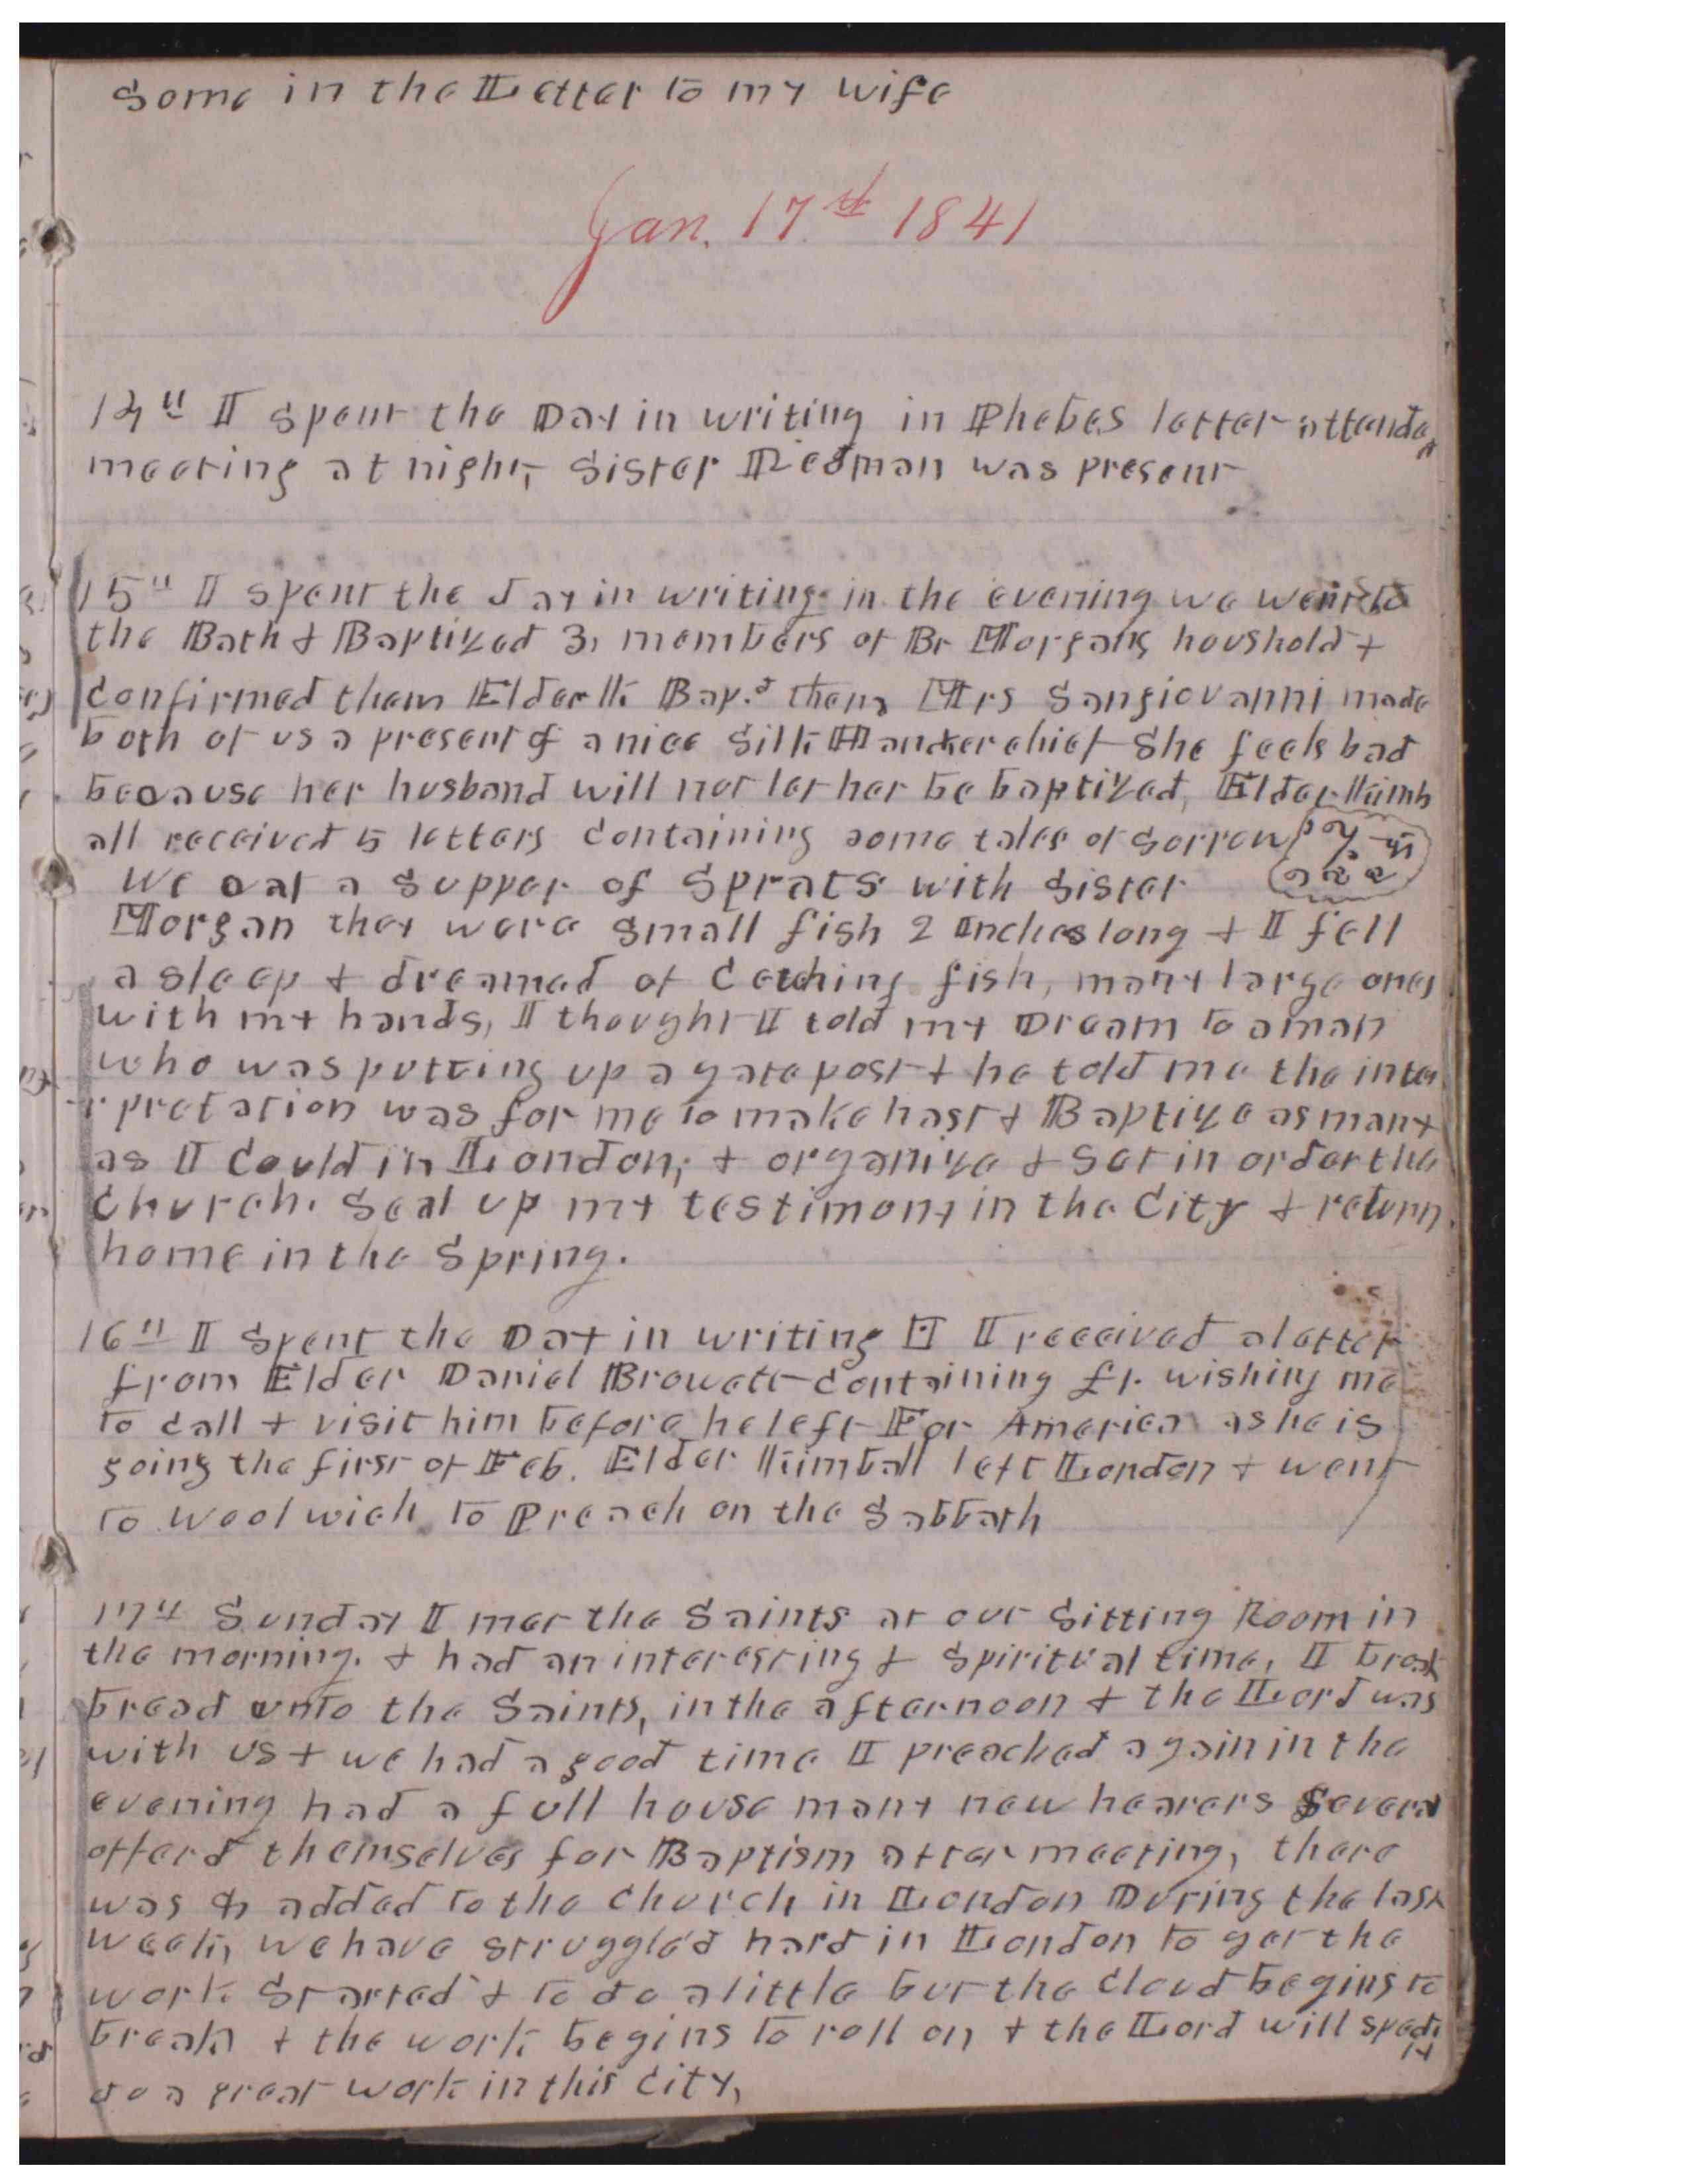 Some in the Letter to my wife
Jan. 17th 1841
14th I spent the Day in writing in Phebes letter attended
meeting at night, Sister Redman was present
15th I spent the day in writing in the evening we went to
the Bath & Baptized 3, members of Br Morgans houshold &
confirmed them Elder K. Bap.d them Mrs Sangiovanni made
both of us a present of a nice Silk Handkerchief She feels bad
because her husband will not let her be baptized, Elder Kimb
all received 5 letters containing some tales of sorrow
We eat a supper of Sprats with Sister
Morgan they were small fish 2 Inches long & I fell
asleep & dreamed of Catching fish, many large ones
with my hands, I thought I told my Dream to a man
who was putting up a gate post & he told me the inter
rpretation was for me to make hast & Baptize as many
as I Could in London, & organize & Set in order the
Church. Seal up my testimony in the City & return
home in the Spring.
16th I Spent the Day in writing I received a letter
from Elder Daniel Browett containing £1. wishing me
to call & visit him before he left For America as he is
going the first of Feb. Elder Kimball left London & went
to Woolwich to Preach on the Sabbath
17th Sunday I met the Saints at our Sitting Room in
the morning. & had an interesting & Spiritual time, I broak
bread unto the Saints, in the afternoon & the Lord was
with us & we had a good time I preached again in the
evening had a full house many new hearers Several
offerd themselves for Baptism after meeting, there
was added to the Church in London During the last
week, we have struggled hard in London to get the
work Started & to do a little but the Cloud begins to
break & the work begins to roll on & the Lord will spedily
do a great work in this City,